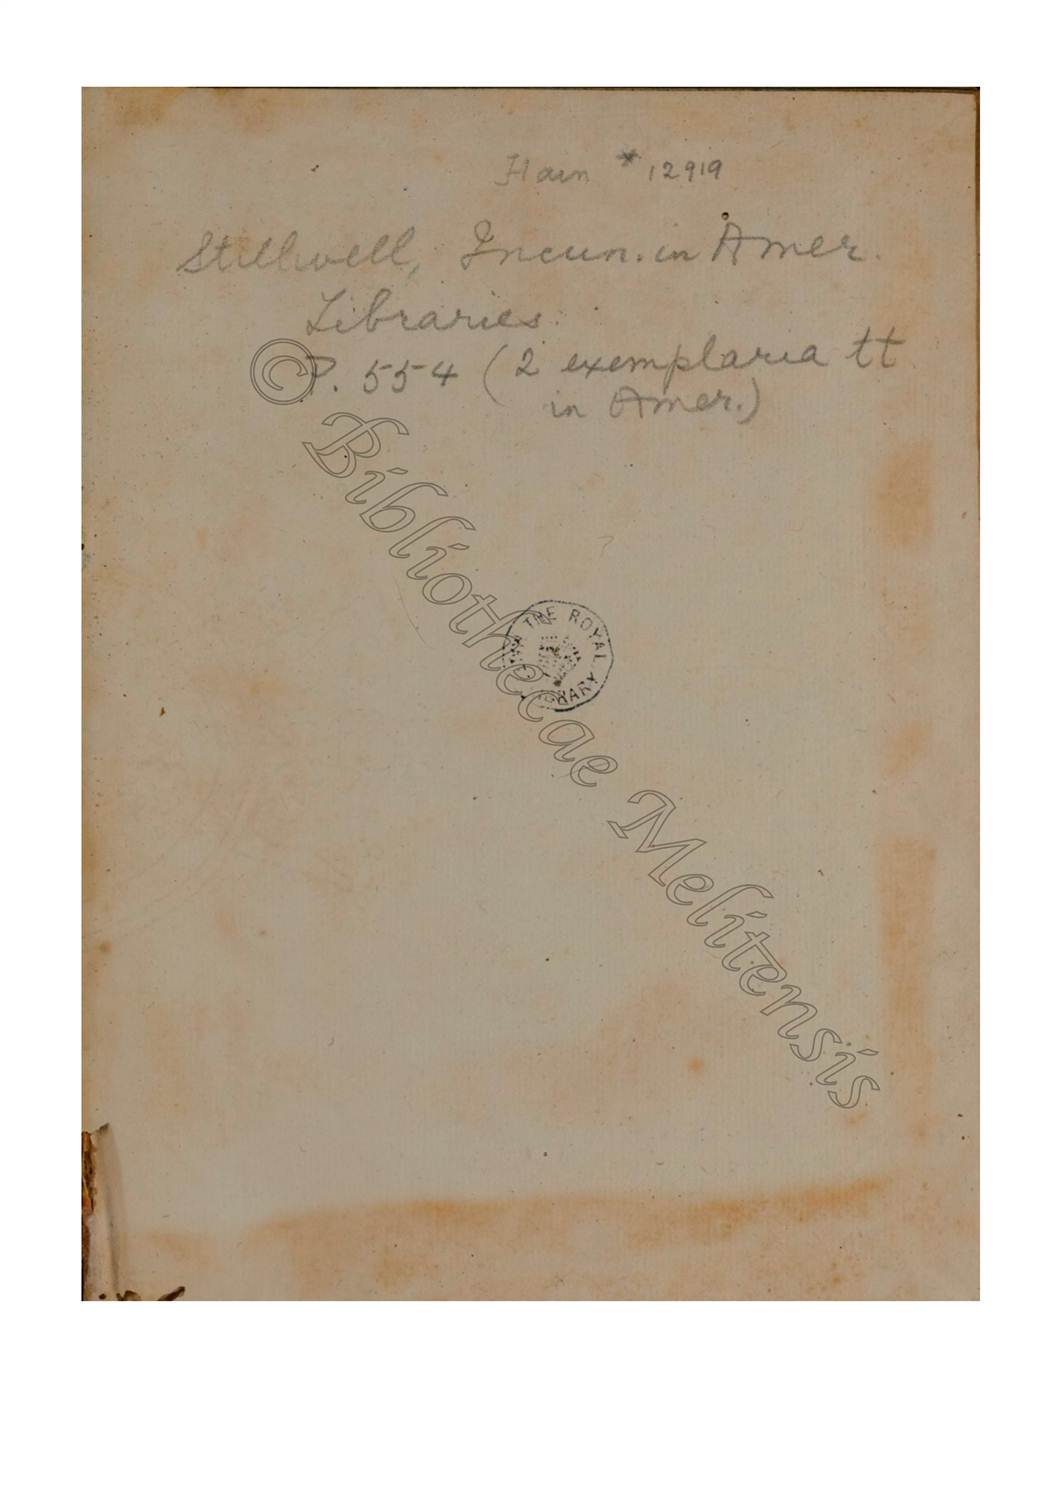 Hain * 12919
Stillwell, Incun. in Amer.
Libraries.
P. 554 (2 exemplaria tt
in Amer.)
THE ROYAL LIBRARY
© Bibliothecae Melitensis